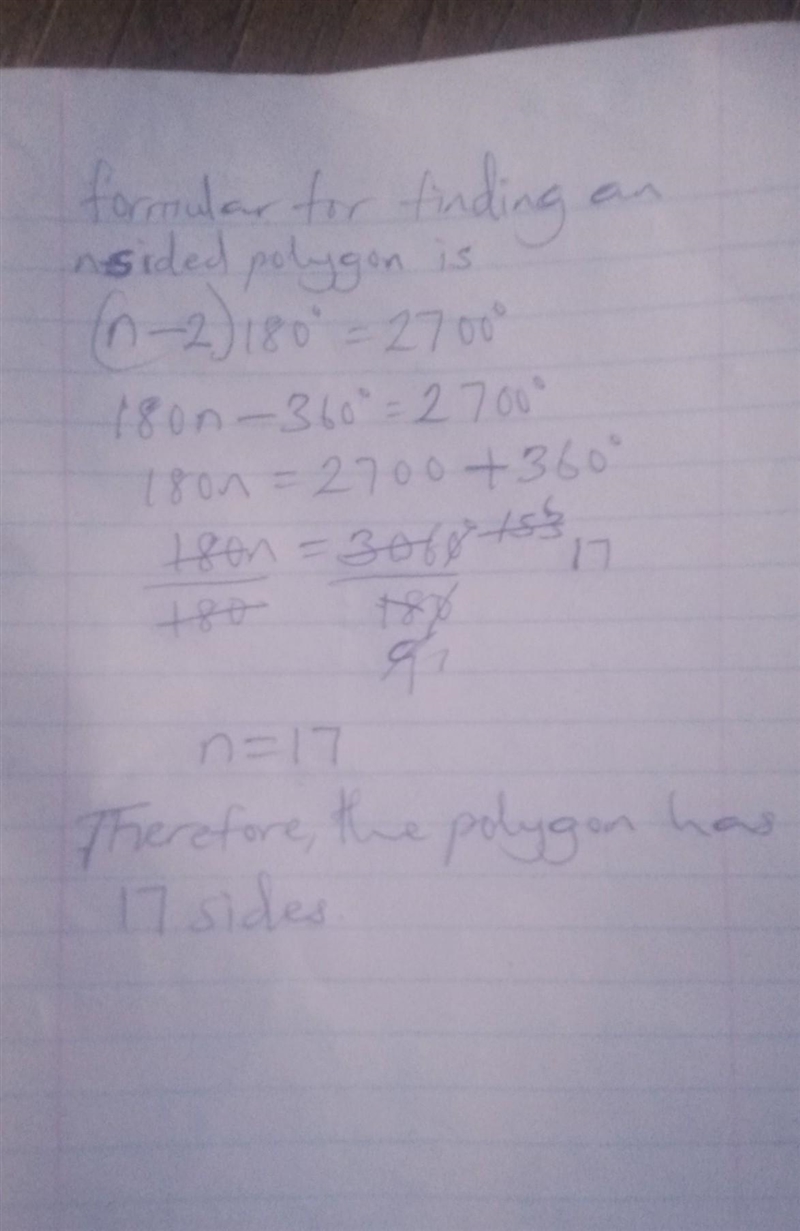 formular for finding an
nsided polygon is
(n-2)180° = 2700°
180n - 360° = 2700°
180n = 2700 + 360°
180n = 3060° 153 17
180 180
9
n = 17
Therefore, the polygon has
17 sides.